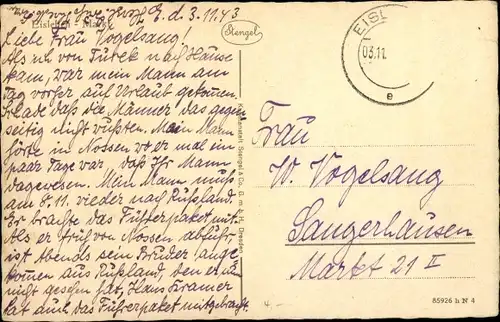 E. d. 3.11.43
Eisleben, Markt
Liebe Frau Vogelsang!
Als ich von Turek nach Hause
kam, war mein Mann am
Tag vorher auf Urlaub gekommen.
Schade daß die Männer das gegen-
seitig nicht wußten. Mein Mann
hörte in Nossen wo er mal ein
paar Tage war, daß Ihr Mann
dagewesen. Mein Mann muß
am 8.11. wieder nach Rußland.
Er brachte das Führerpaket mit.
Als er früh von Nossen abfuhr,
ist Abends sein Bruder ange-
kommen aus Rußland, den er nun
nicht gesehen hat, Hans Kramer
hat auch das Führerpaket mitgebracht.
Stengel
Stengel & Co. G.m.b.H., Dresden
EISL
03.11.
e
Frau
W. Vogelsang
Sangerhausen
Markt 21 II
85926 h N 4
4.-